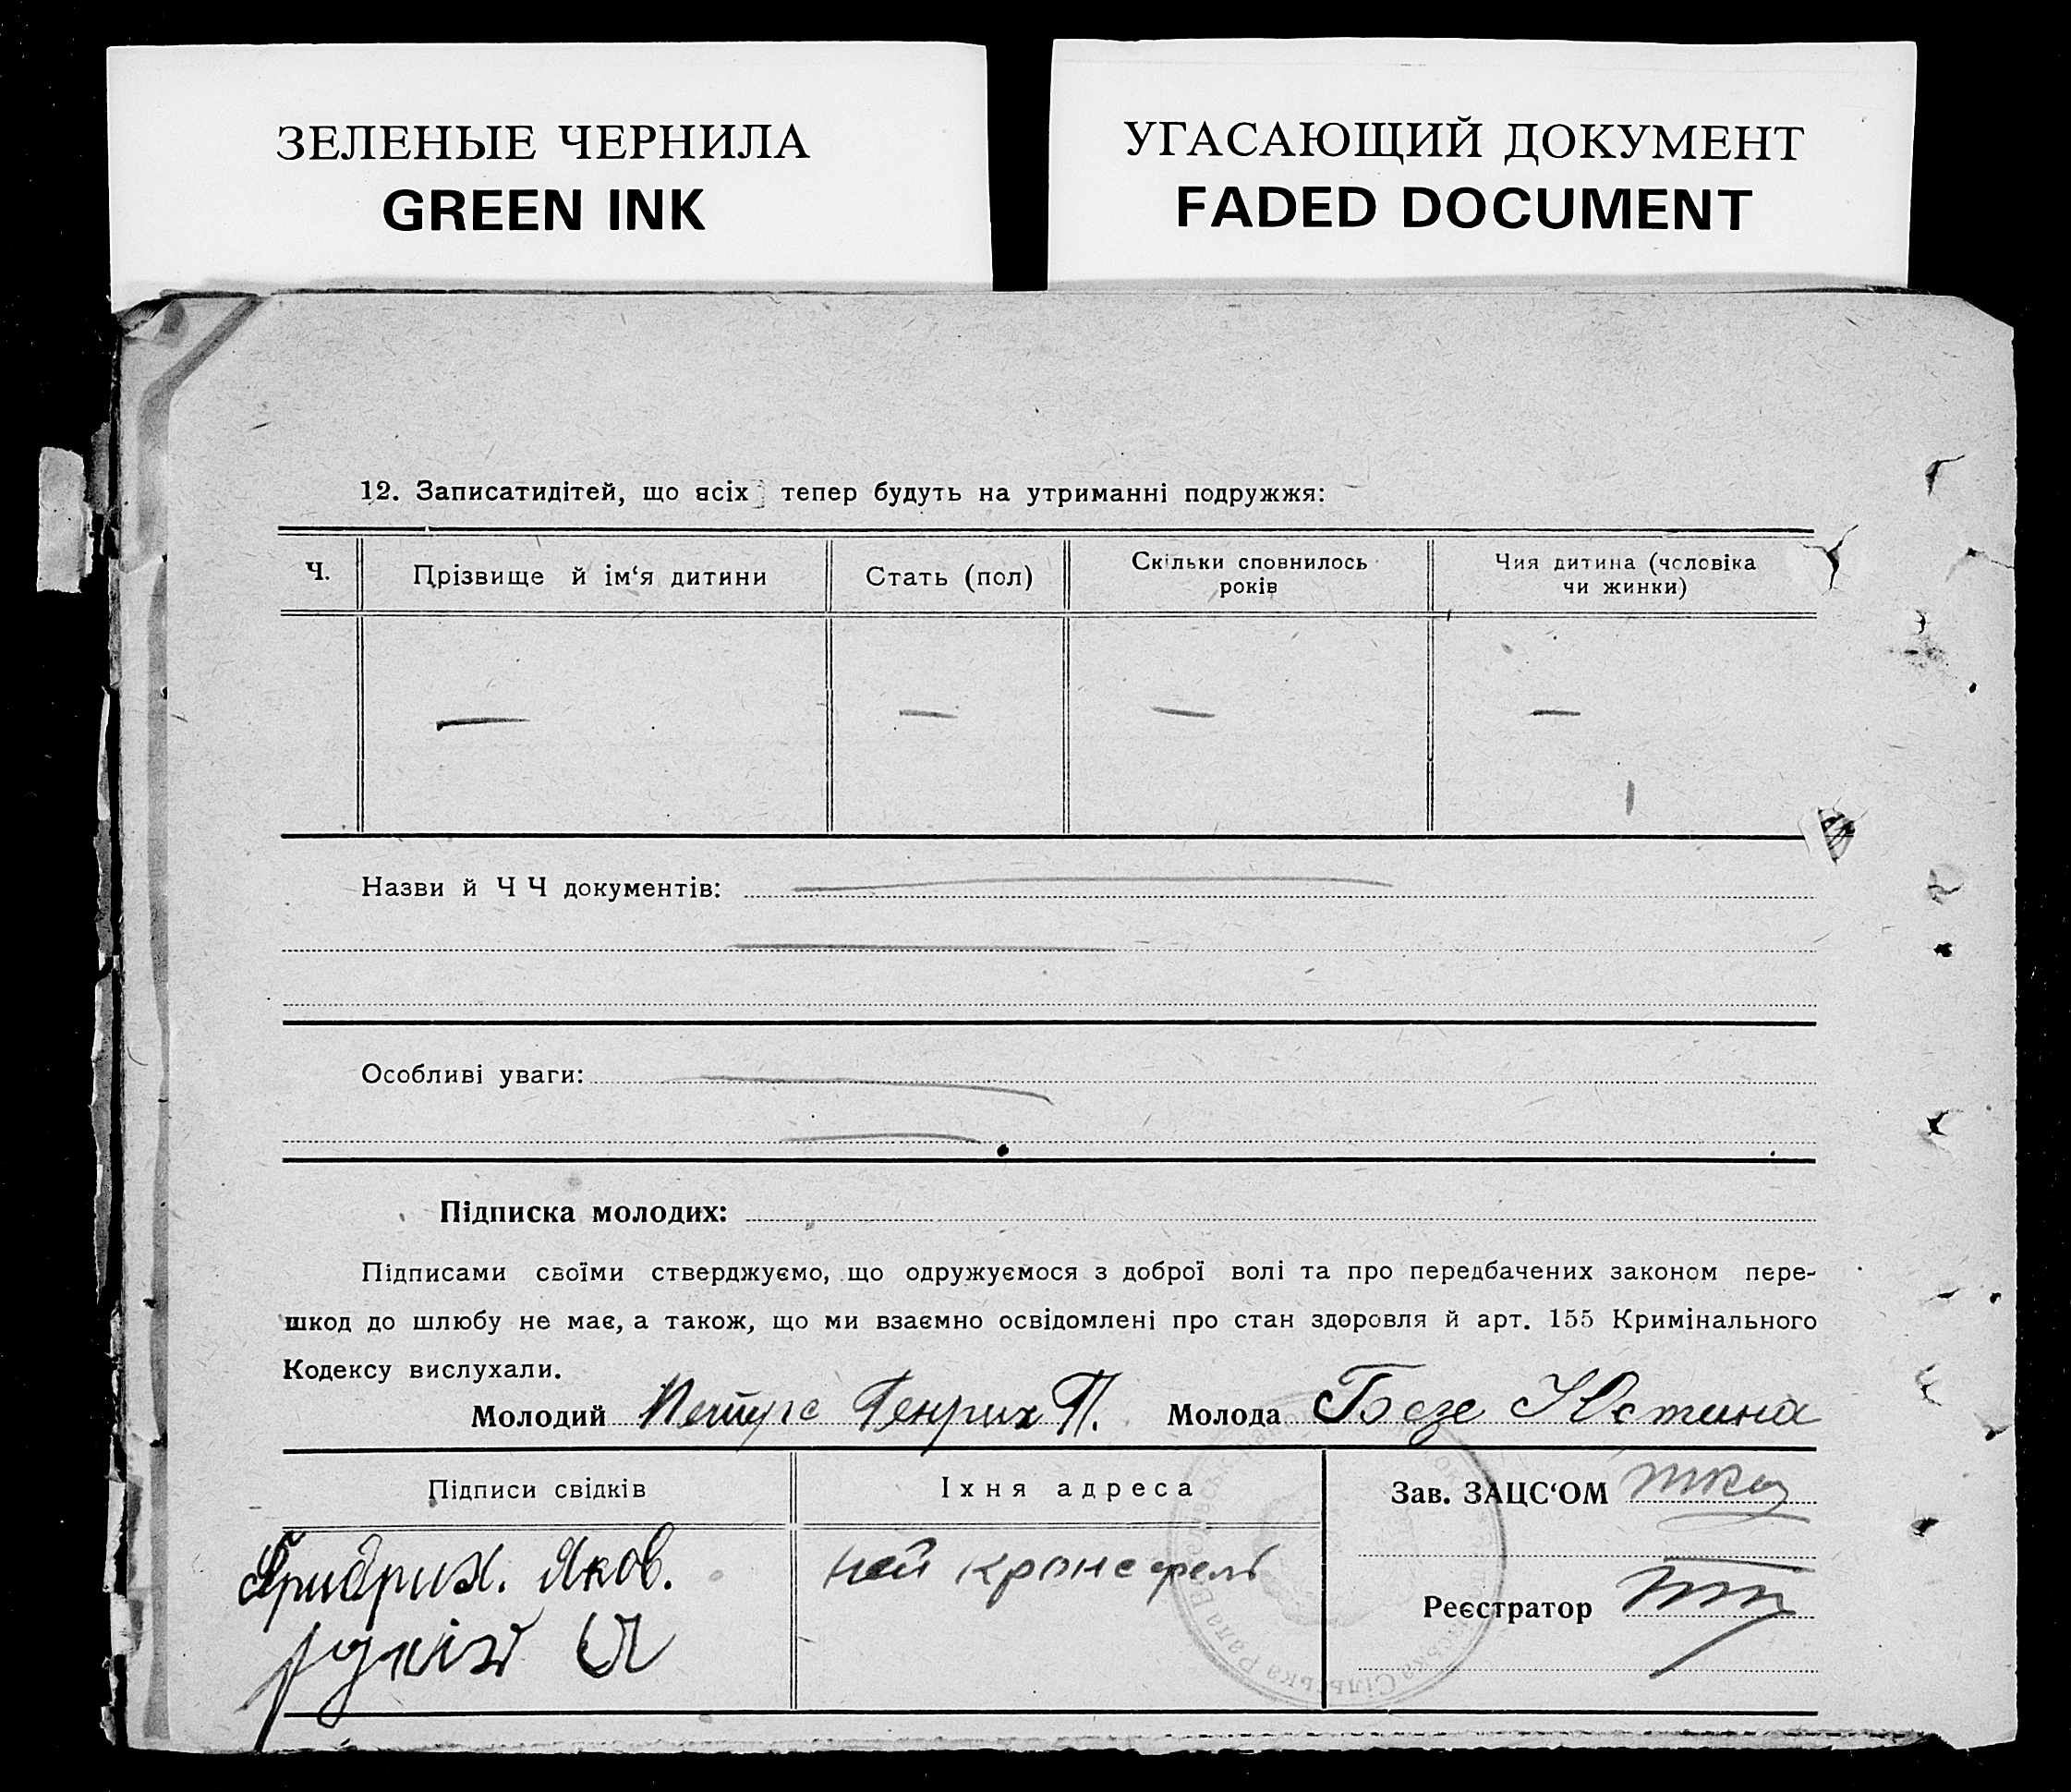 ЗЕЛЕНЫЕ ЧЕРНИЛА
GREEN INK
УГАСАЮЩИЙ ДОКУМЕНТ
FADED DOCUMENT
12. Записатидітей, що всіх тепер будуть на утриманні подружжя:
Ч.
Прізвище й ім‘я дитини
Стать (пол)
Скільки сповнилось
років
Чия дитина (чоловіка
чи жинки)
—
—
—
—
Назви й Ч Ч документів:
Особливі уваги:
Підписка молодих:
Підписами своїми стверджуємо, що одружуємося з доброї волі та про передбачених законом пере-
шкод до шлюбу не має, а також, що ми взаємно освідомлені про стан здоровля й арт. 155 Кримінального
Кодексу вислухали.
Молодий Петерс Генрих П. Молода Безе Юстина
Підписи свідків
Їхня адреса
Зав. ЗАЦС‘ОМ
Фридрих. Яков.
ней кронсфель
Реєстратор
Сільська Рада